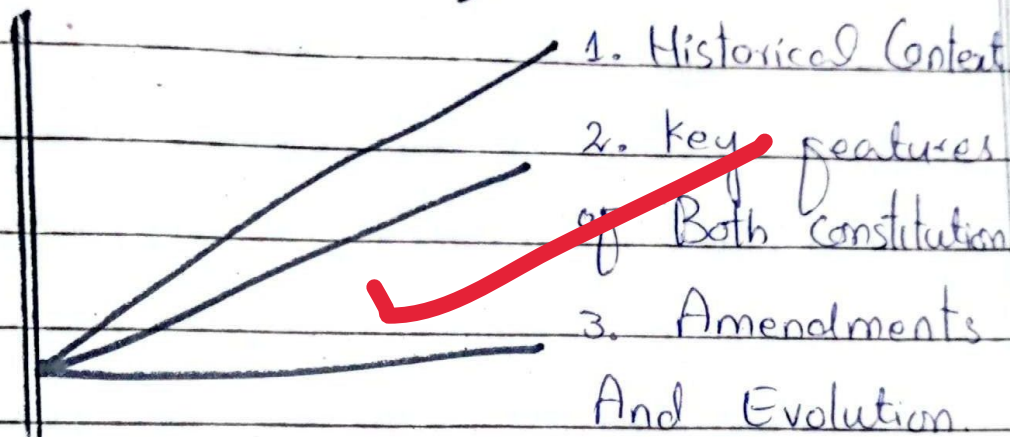 1. Historical Context
2. Key features
of Both constitution
3. Amendments
And Evolution.